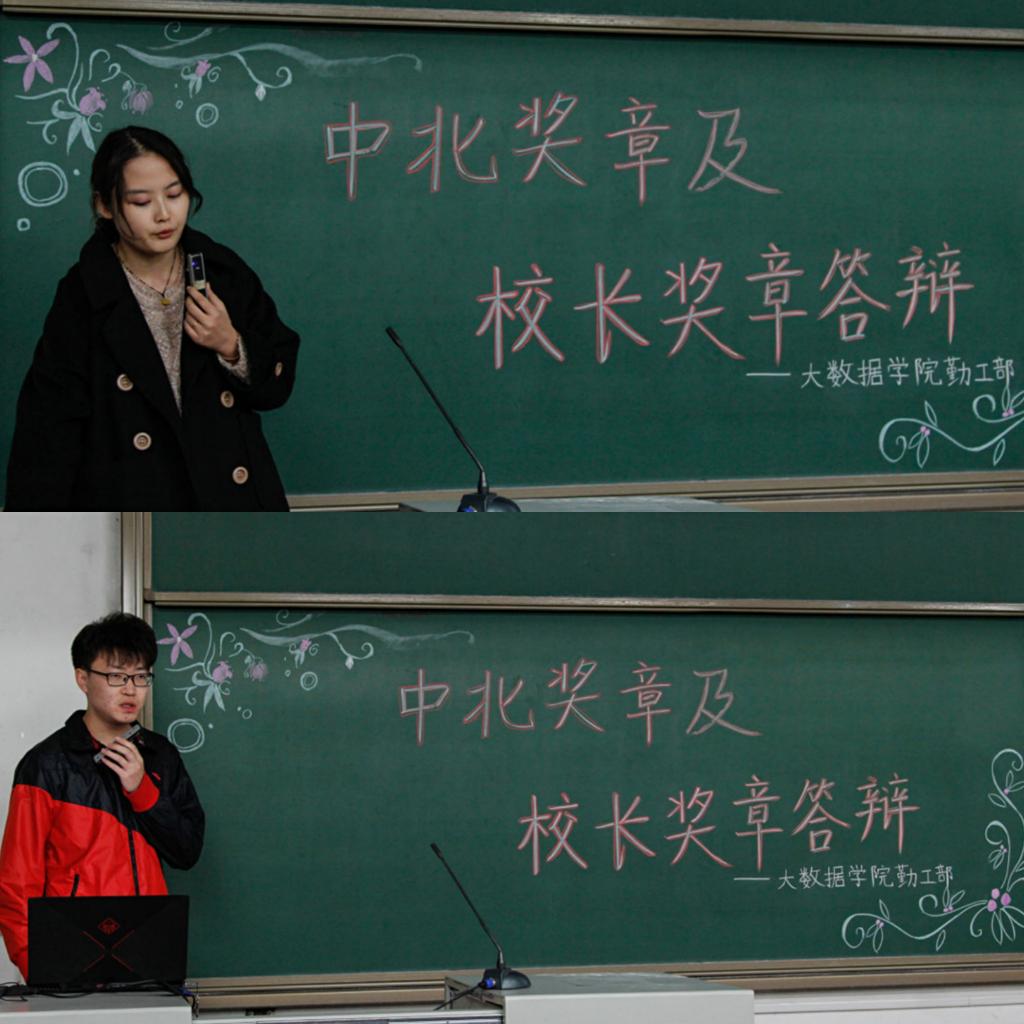 中北奖章及
校长奖章答辩
—大数据学院勤工部
中北奖章及
校长奖章答辩
—大数据学院勤工部